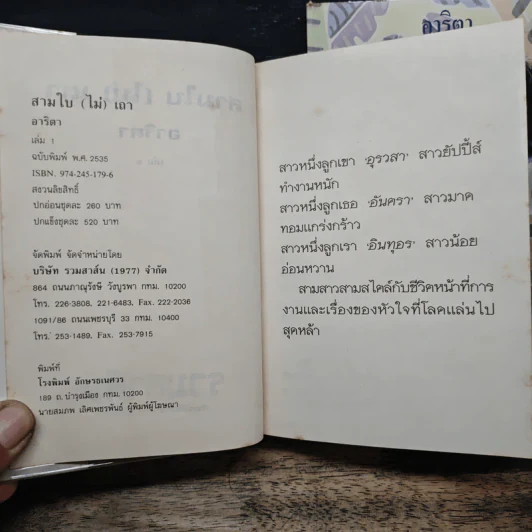 อาริตา
สามใบ (ไม่) เถา
อาริตา
เล่ม 1
ฉบับพิมพ์ พ.ศ. 2535
ISBN. 974-245-179-6
สงวนลิขสิทธิ์
ปกอ่อนชุดละ 260 บาท
ปกแข็งชุดละ 520 บาท
จัดพิมพ์ จัดจำหน่ายโดย
บริษัท รวมสาส์น (1977) จำกัด
864 ถนนภาณุรังษี วังบูรพา กทม. 10200
โทร. 226-3808, 221-6483, Fax. 222-2036
1091/86 ถนนเพชรบุรี 33 กทม. 10400
โทร. 253-1489, Fax. 253-7915
พิมพ์ที่
โรงพิมพ์ อักษรธเนศวร
189 ถ. บำรุงเมือง กทม. 10200
นายสมภพ เลิศเพชรพันธ์ ผู้พิมพ์ผู้โฆษณา
สาวหนึ่งลูกเขา 'อุรวสา' สาวยัปปี้ส์
ทำงานหนัก
สาวหนึ่งลูกเธอ 'อันครา' สาวมาด
ทอมแกร่งกร้าว
สาวหนึ่งลูกเรา 'อินทุอร' สาวน้อย
อ่อนหวาน
สามสาวสามสไตล์กับชีวิตหน้าที่การ
งานและเรื่องของหัวใจที่โลดแล่นไป
สุดหล้า